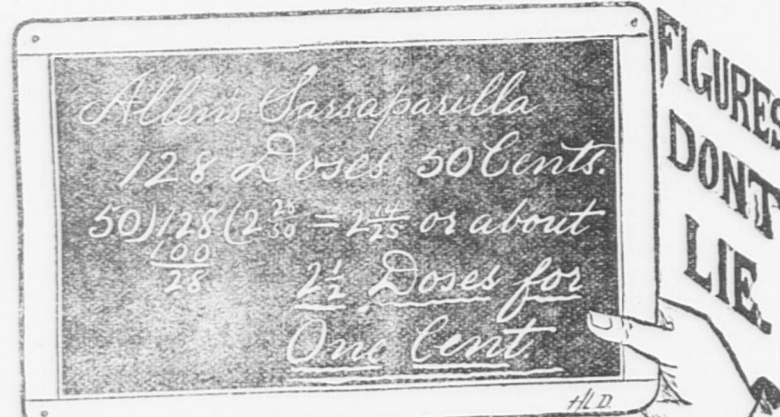 Allen's Sarsaparilla
128 Doses 50 Cents.
50)128(2 28/50 = 2 14/25 or about
100
28
2 1/2 Doses for
One Cent.
H.L.D.
FIGURES
DON'T
LIE.